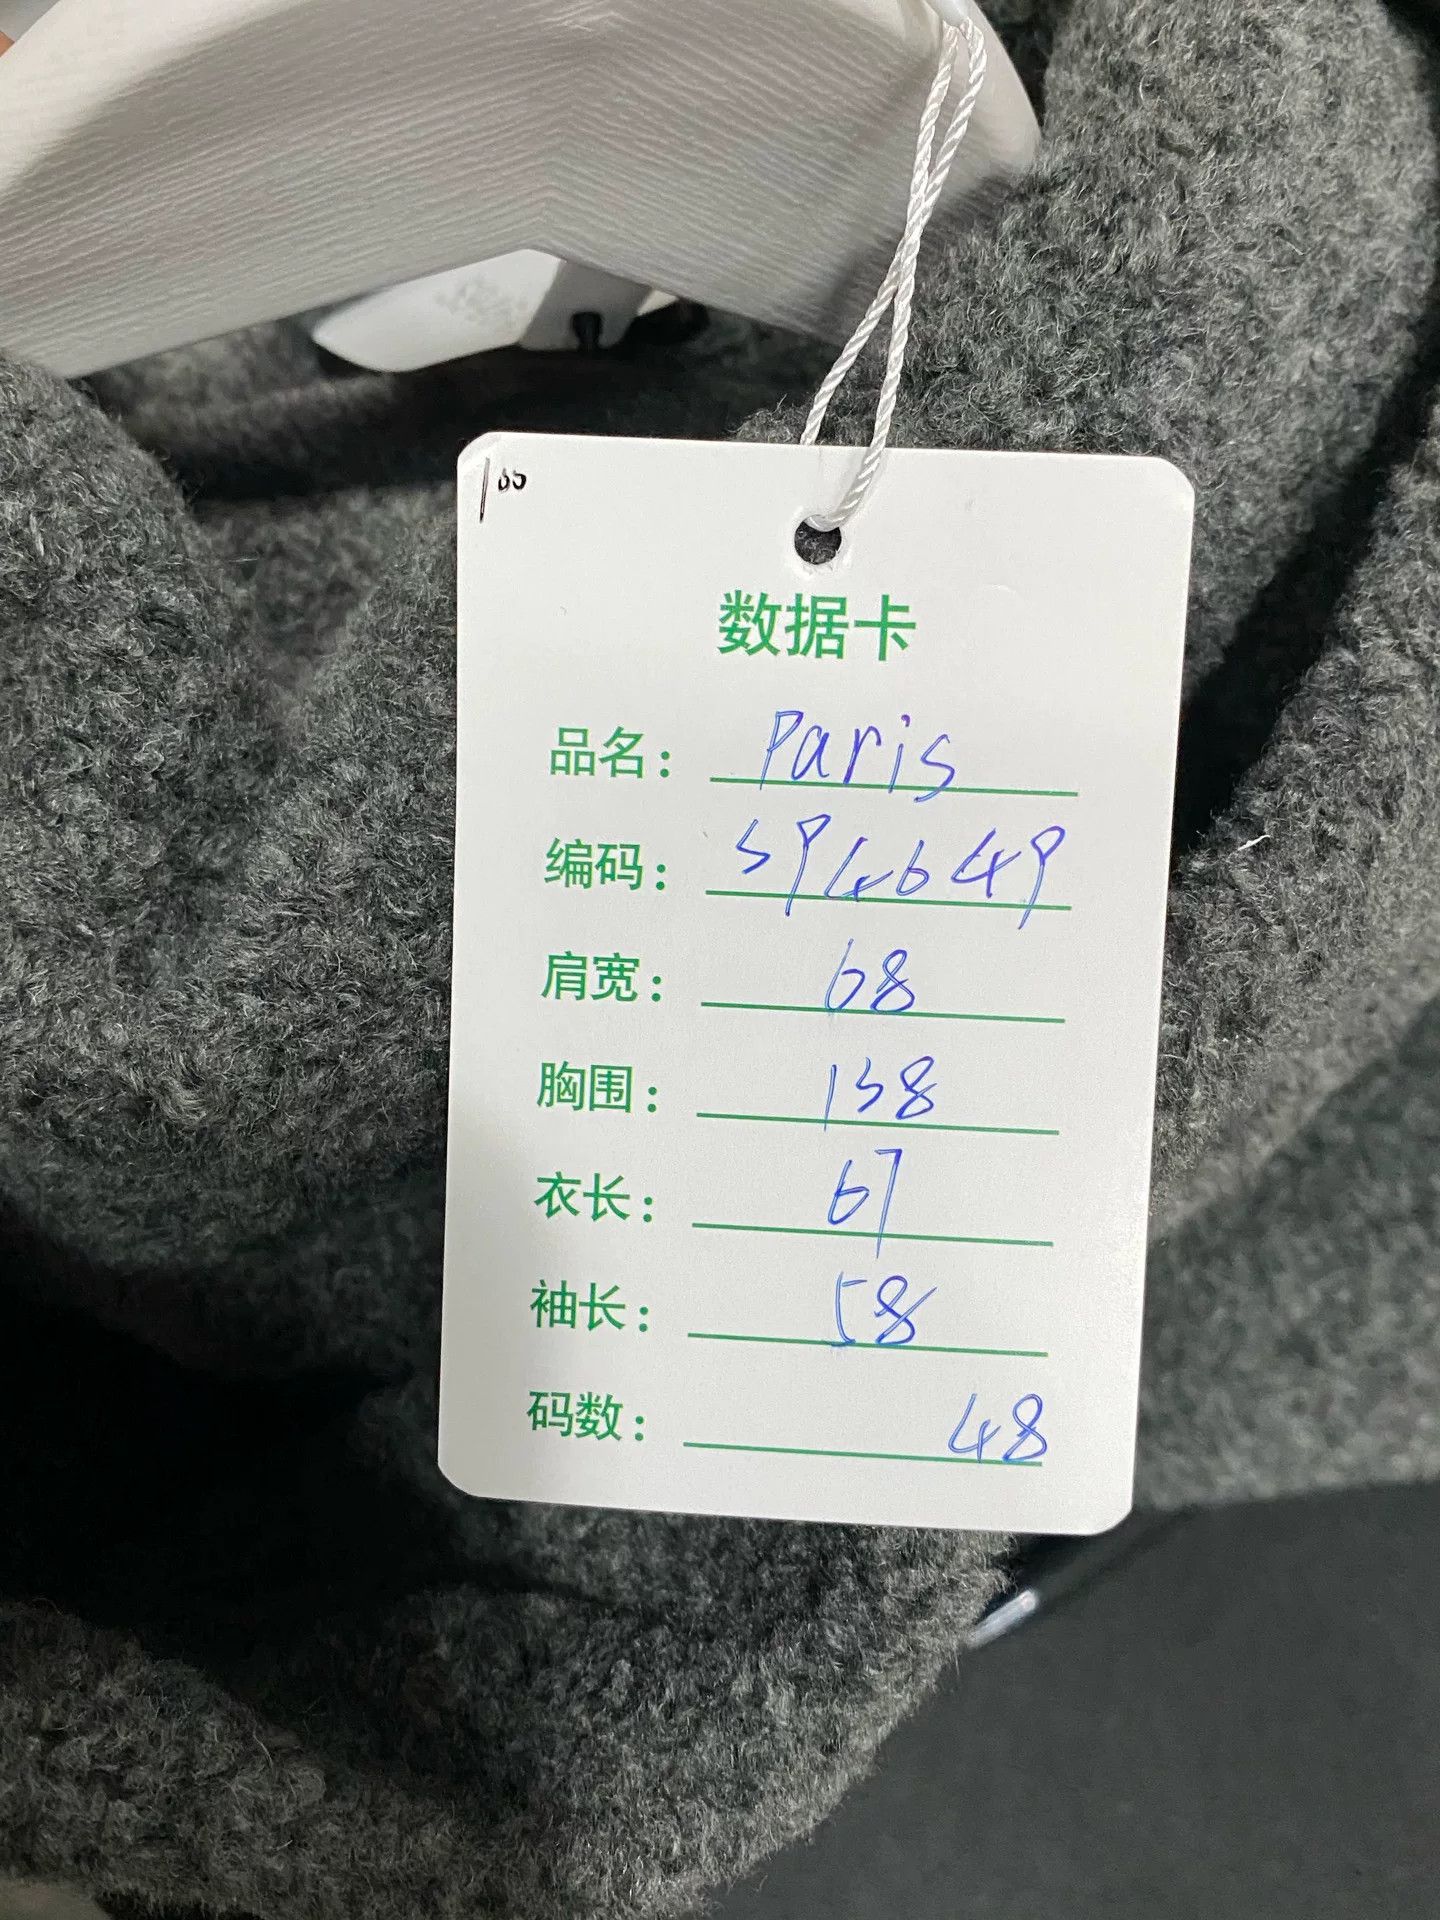 100
数据卡
品名: Paris
编码: 594649
肩宽: 68
胸围: 138
衣长: 67
袖长: 58
码数: 48